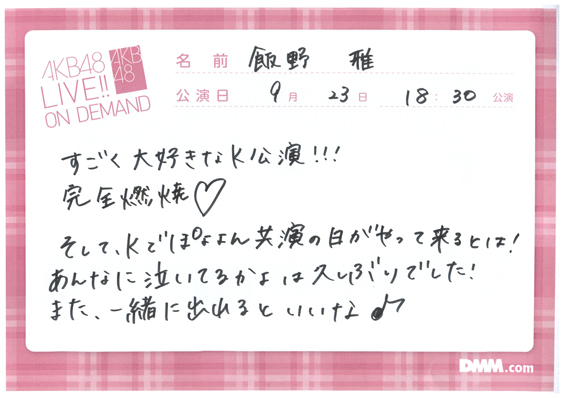 AKB48
LIVE!!
ON DEMAND
AKB
48
名前 飯野 雅
公演日 9月 23日 18:30 公演
すごく大好きなK公演!!!
完全燃焼♡
そして、Kでぽよよん共演の日がやって来るとは!
あんなに泣いてるかよは久しぶりでした!
また、一緒に出れるといいな♪
DMM.com